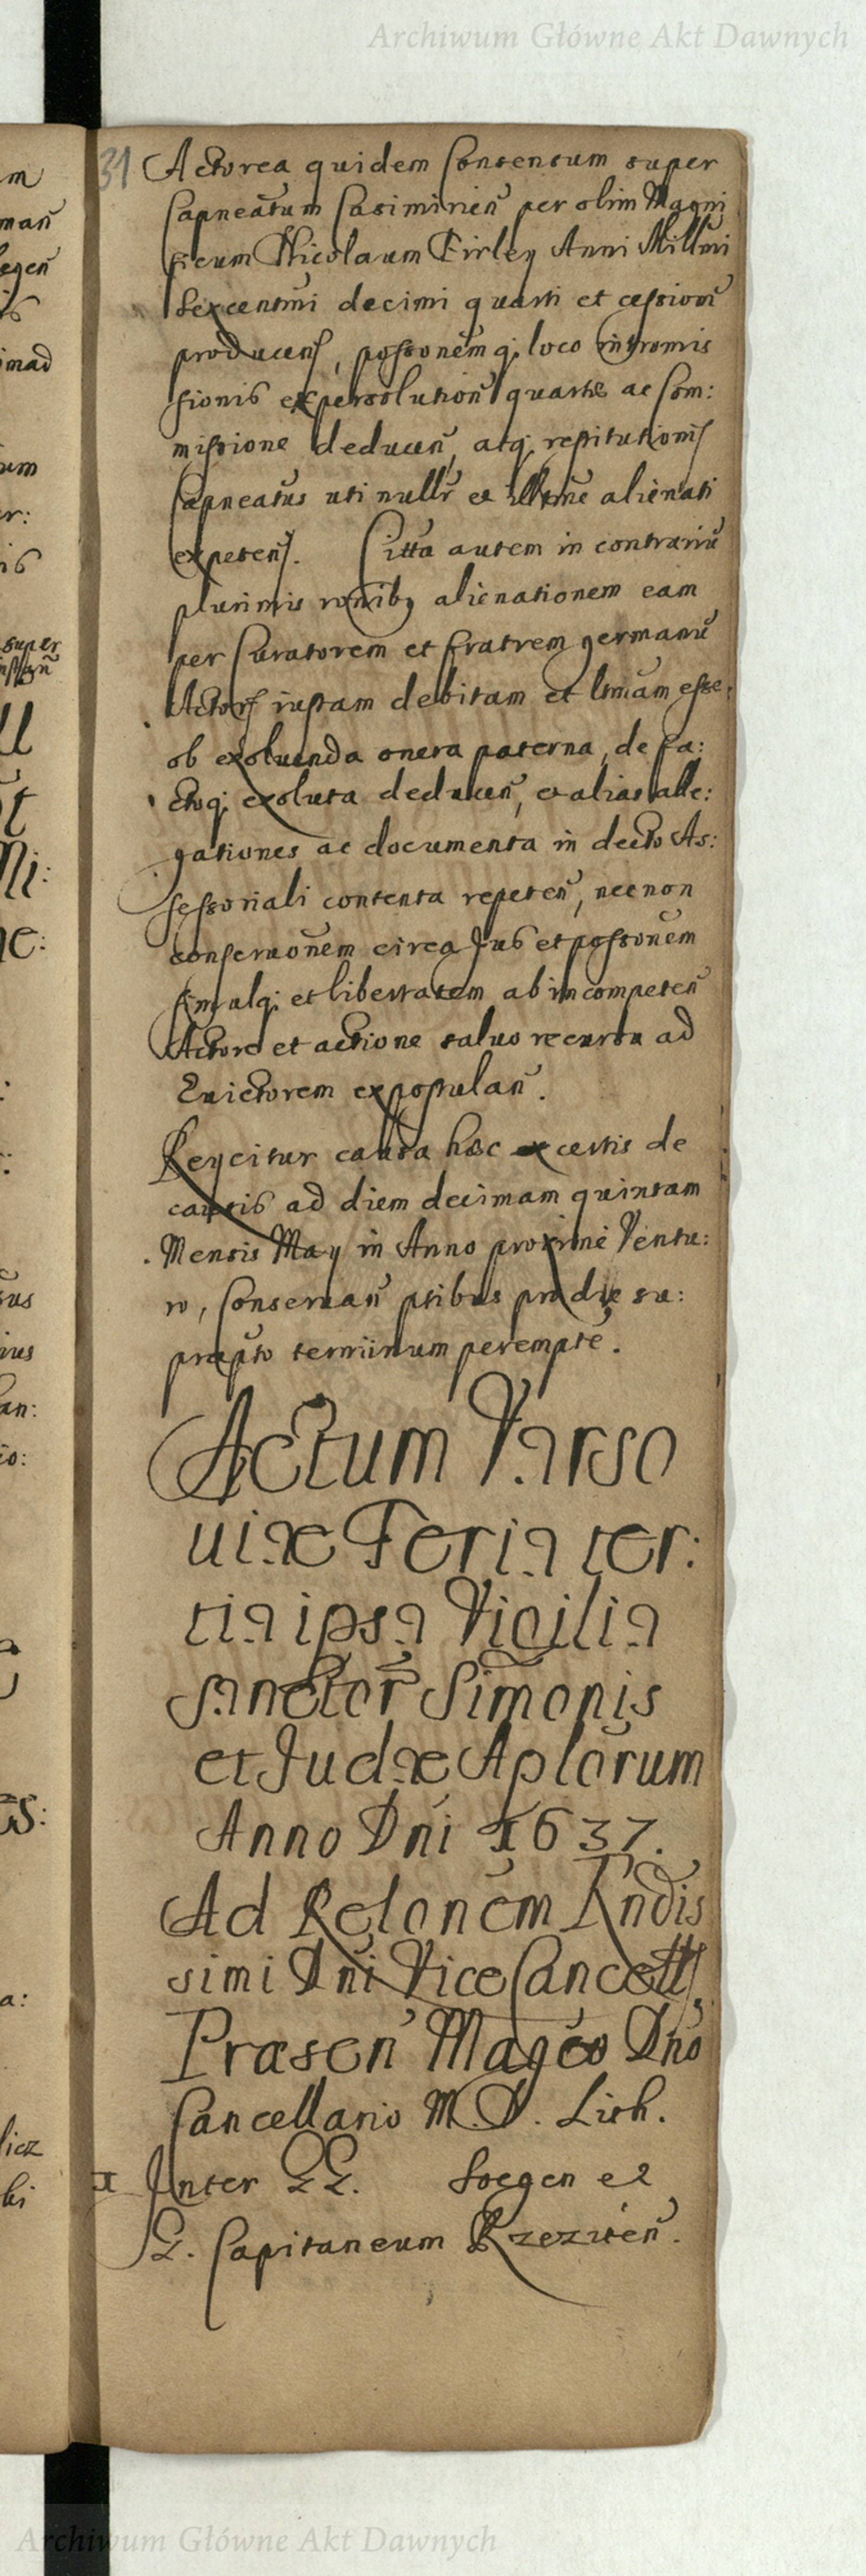 Archiwum Główne Akt Dawnych
31 Actorea quidem Consensum super
Capneatum Casimirien̄ per olim Magni
ficum Nicolaum Firley Anni Mill̄mi
Sexcentmi decimi quarti et cessiom̄
producen, possonem q; loco intromis
sionis ex persolution̄ quartæ ac Com:
missione deducen̄, atq; restitutionis
Capneatus uti nullr̄ et illtme alienati
expeten. Citta autem in contrariū
plurimis ronibq alienationem eam
per Curatorem et fratrem germanū
Actor iustam debitam et ltmam esse,
ob exoluenda onera paterna, de fa:
ctoq; exoluta deducen̄, et alias alle:
gationes ac documenta in decto As:
sessoriali contenta repeten̄, necnon
conseruonem circa Jus et possonem
simulq; et libertatem ab incompeten̄
Actore et actione saluo recursu ad
Euictorem expostulan̄.
Reycitur causa hæc ex certis de
causis ad diem decimam quintam
Mensis May in Anno proximè Ventu:
ro, Conseruan̄ ptibus pro die su:
prapto terminum perempte.
Actum Varso
uiæ Feria ter:
tia ipsa Vigilia
Sanctor̄ Simonis
et Judæ Aplorum
Anno Dni 1637.
Ad Relonem Rndis
simi Dni Vice Cancell
Præsen̄ Magco Dno
Cancellario M. D. Lith.
Inter GG. Soegen et
G. Capitaneum Rzezicen̄.
Archiwum Główne Akt Dawnych